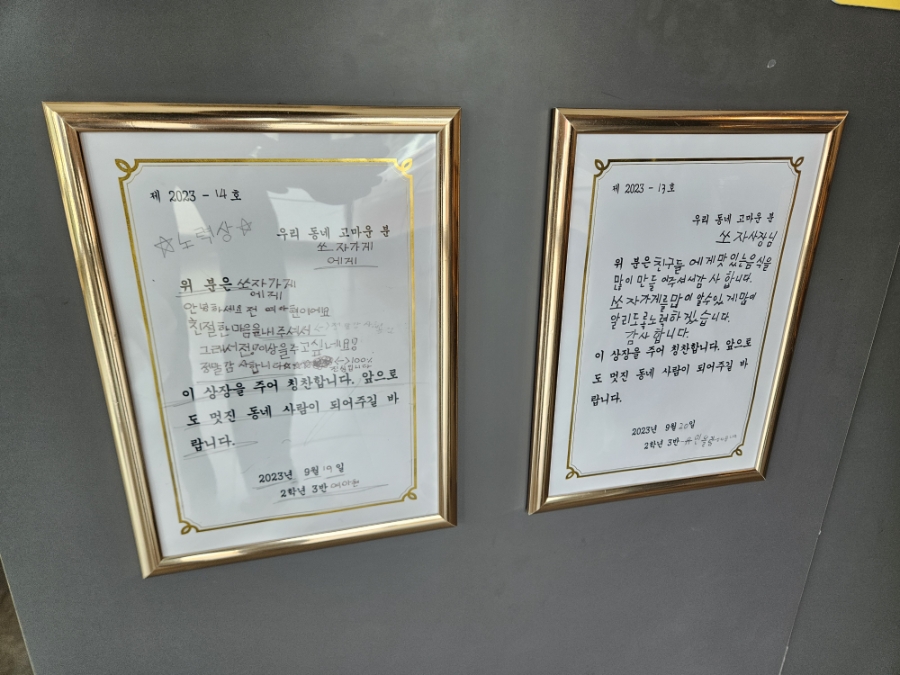 제 2023 - 14 호
☆노력상☆
우리 동네 고마운 분
쏘자가게
에게
위 분은 쏘자가게
에게
안녕하세요 전 이에요
친절한마음을내주셔서
그래서전이상을주고싶네요!
정말감사합니다 100%
이 상장을 주어 칭찬합니다. 앞으로
도 멋진 동네 사람이 되어주길 바
랍니다.
2023년 9월 19일
2학년 3반
제 2023 - 13호
우리 동네 고마운 분
쏘자사장님
위 분은친구들 에게맛있는음식을
많이 만들어주셔서감사합니다.
쏘자가게를많이알수있게많이
알리도록노력하겠습니다.
감사합니다.
이 상장을 주어 칭찬합니다. 앞으로
도 멋진 동네 사람이 되어주길 바
랍니다.
2023년 9월 20일
2학년 3반